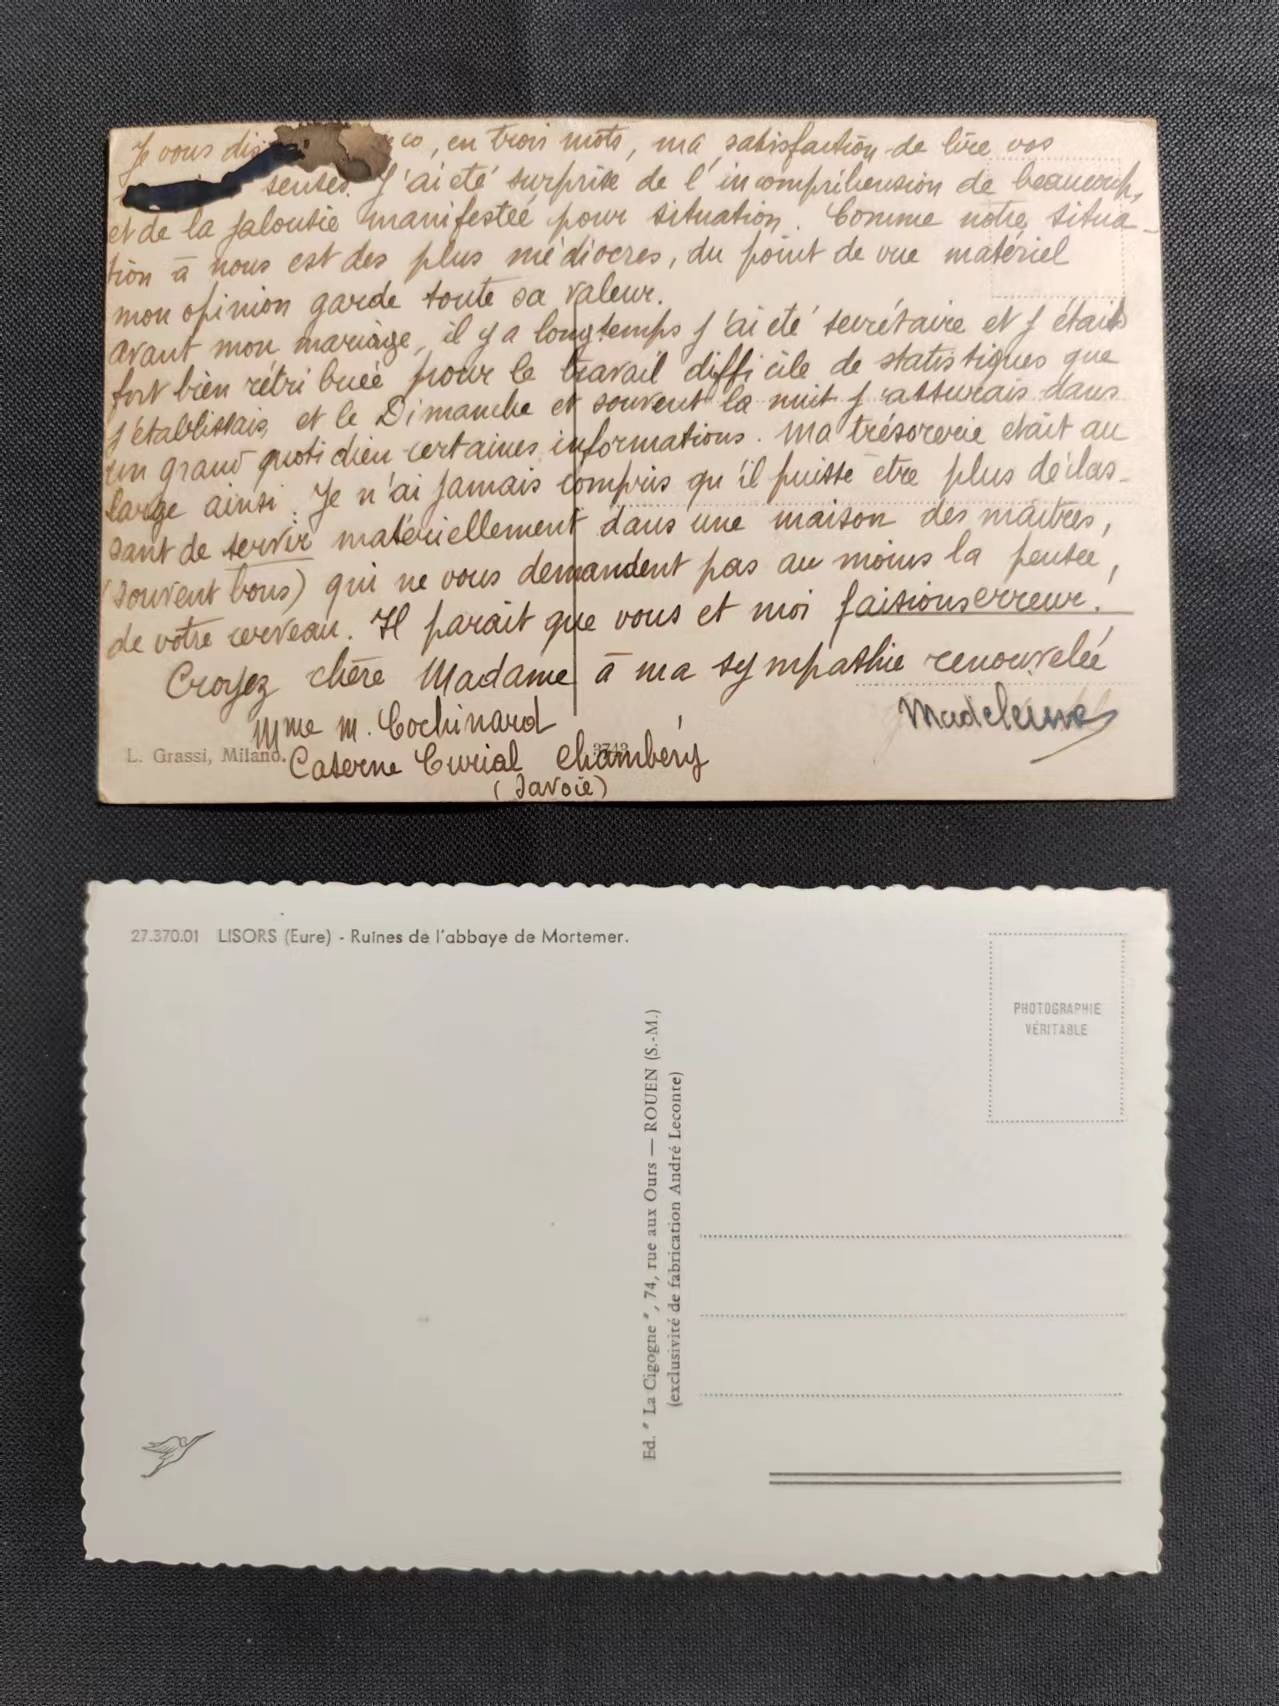 Je vous dis en trois mots, ma satisfaction de lire vos
sensés. J'ai été surprise de l'incompréhension de beaucoup,
et de la jalousie manifesteé pour situation. Comme notre situa-
tion à nous est des plus médiocres, du point de vue matériel
mon opinion garde toute sa valeur.
Avant mon mariage, il y a longtemps j'ai été secrétaire et j'étais
fort bien rétribueé pour le travail difficile de statistiques que
j'établissais, et le Dimanche et souvent la nuit j'assurais dans
un grand quotidien certaines informations. Ma trésorerie était au
large ainsi. Je n'ai jamais compris qu'il puisse être plus déclas-
sant de servir matériellement dans une maison des maîtres,
(souvent bons) qui ne vous demandent pas au moins la pensée,
de votre cerveau. Il parait que vous et moi faisions erreur!
Croyez chère Madame à ma sympathie renouvelée
Madeleine
Mme M. Cochinard
L. Grassi, Milano.
Caserne Curial Chambéry
(Savoie)
27.370.01 LISORS (Eure) - Ruines de l'abbaye de Mortemer.
PHOTOGRAPHIE
VÉRITABLE
Ed. " La Cigogne ", 74, rue aux Ours — ROUEN (S.-M.)
(exclusivité de fabrication André Leconte)